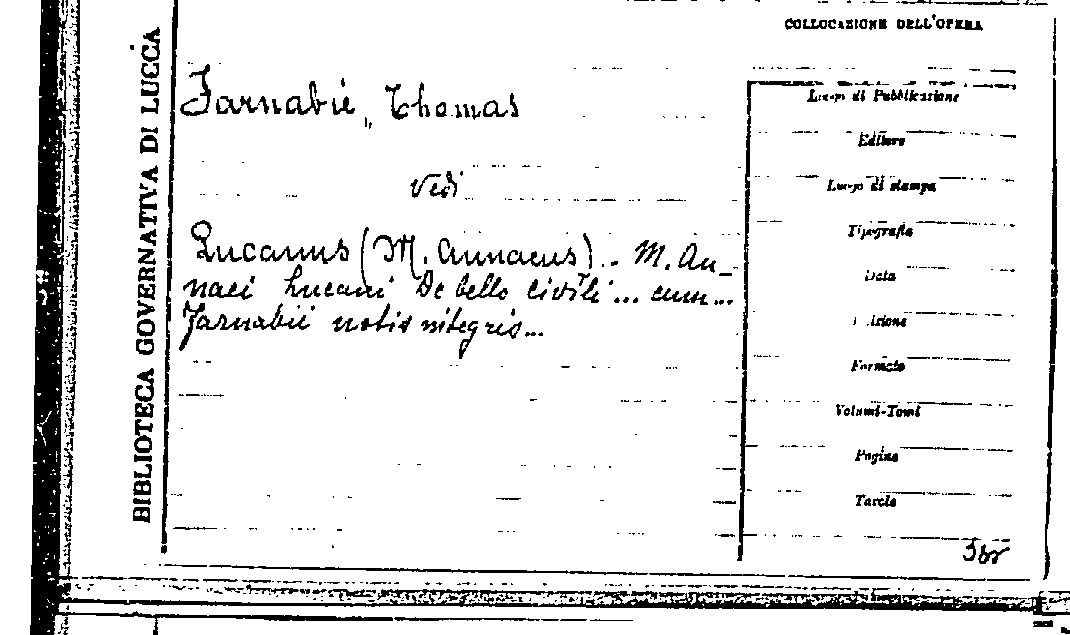 BIBLIOTECA GOVERNATIVA DI LUCCA
COLLOCAZIONE DELL'OPERA
Farnabii, Thomas
Vedi
Lucanus (M. Annaeus). - M. An-
naei Lucani De bello civili... cum...
Farnabii notis integris...
Luogo di Pubblicazione
Editore
Luogo di stampa
Tipografia
Data
Edizione
Formato
Volumi-Tomi
Pagine
Tavole